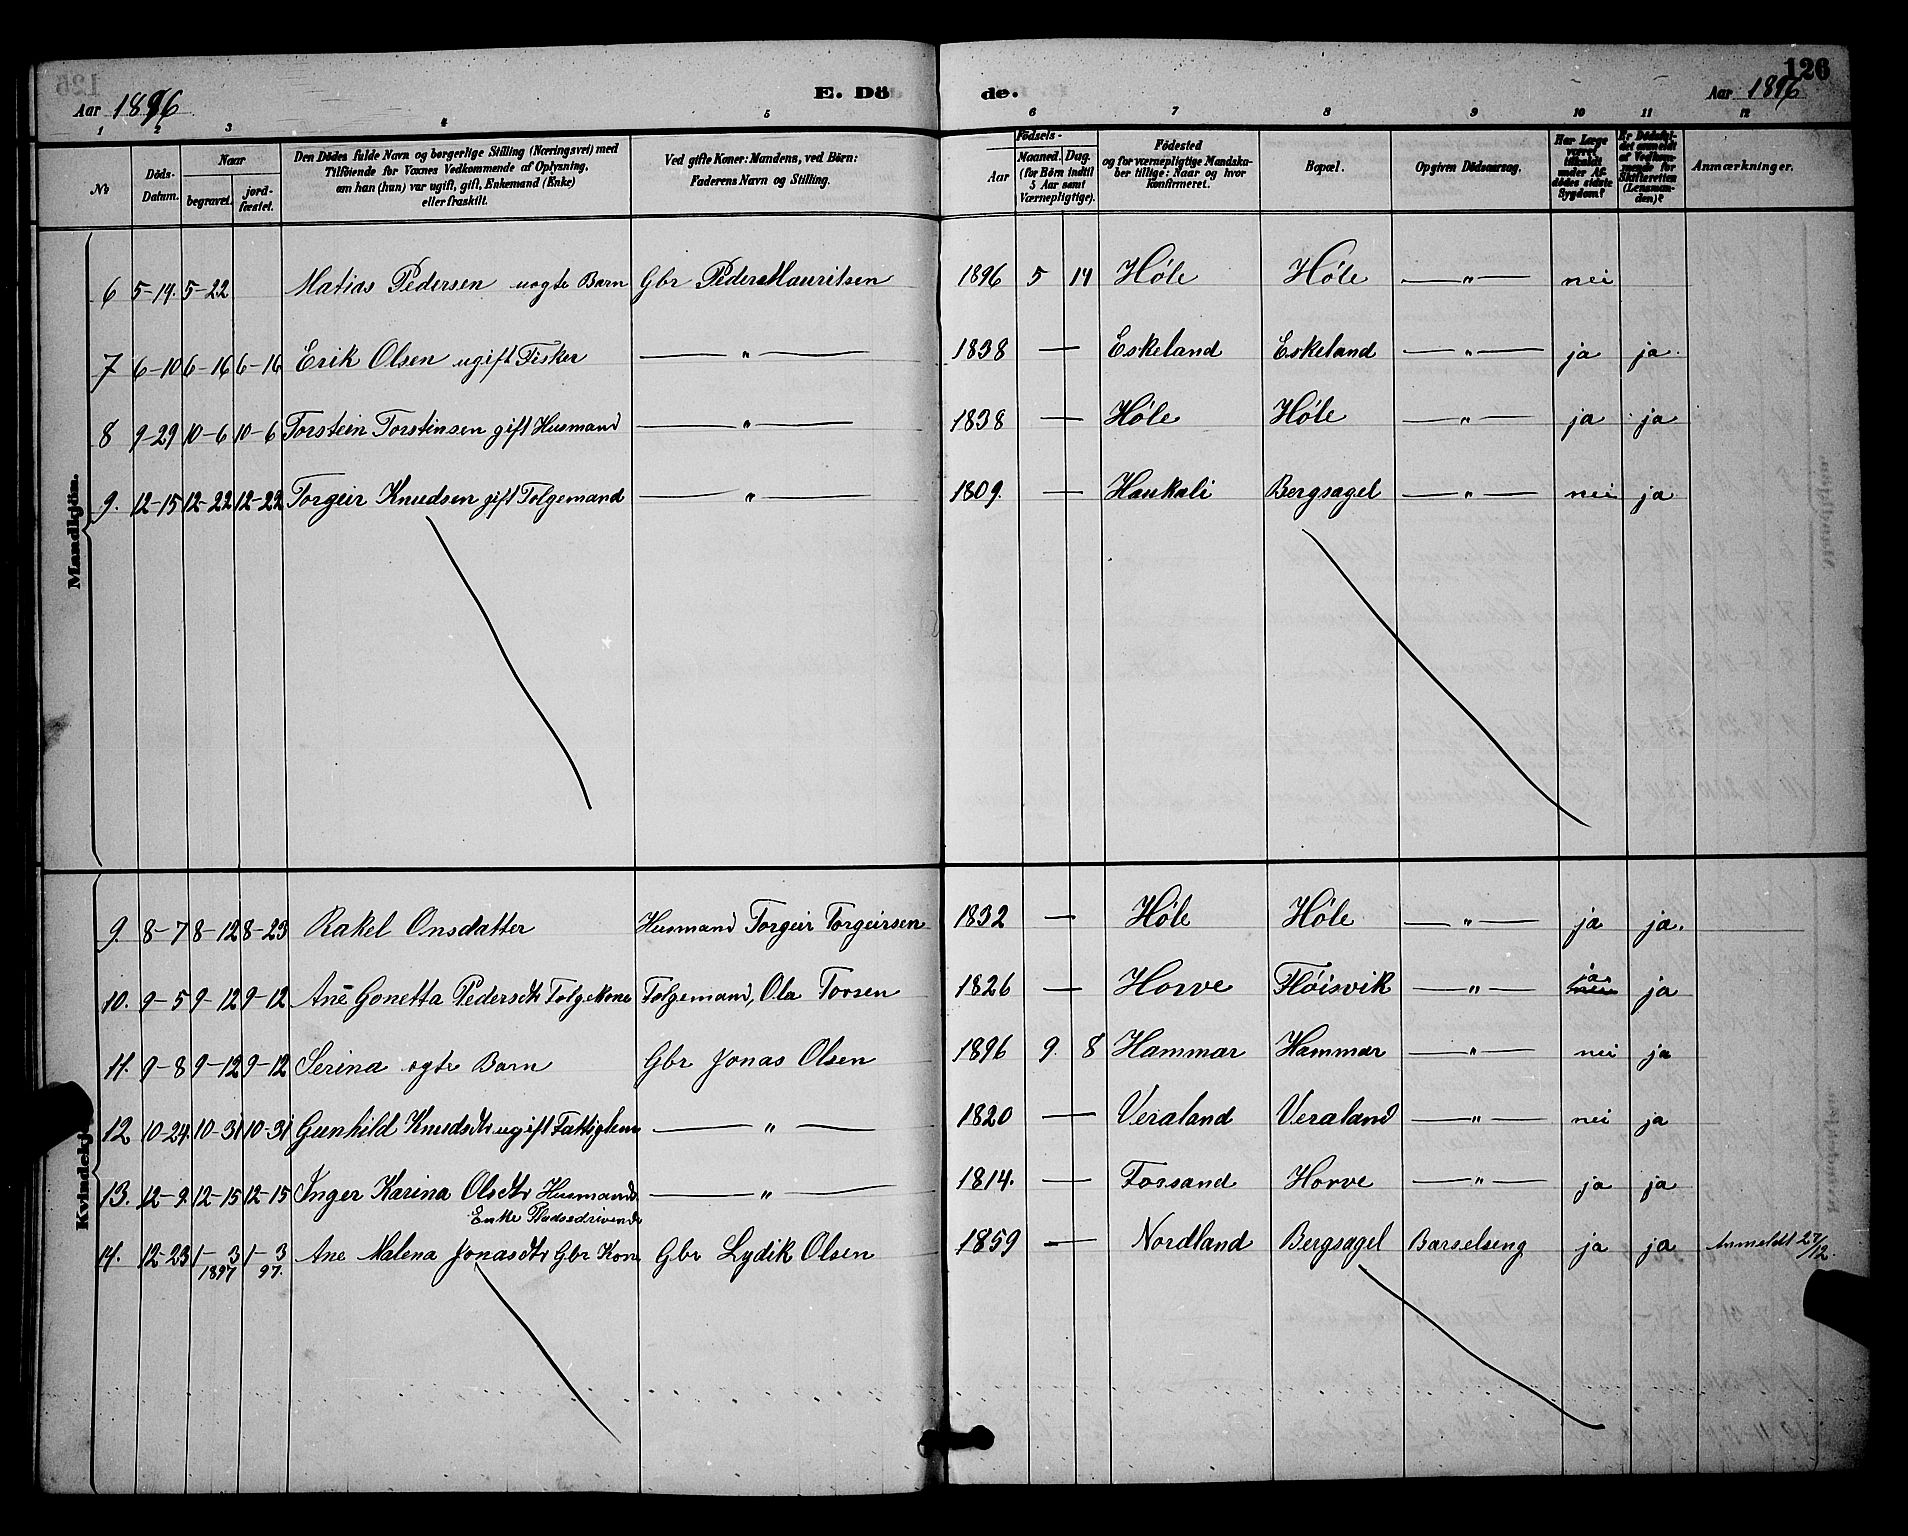 126
Aar 1896
E. Döde.
Aar 1896
1 2 3 4 5 6 7 8 9 10 11 12
No
Döds-Datum.
Naar
begravet.
jord-fæstet.
Den Dödes fulde Navn og borgerlige Stilling (Næringsvei) med
Tilföiende for Voxnes Vedkommende af Oplysning,
om han (hun) var ugift, gift, Enkemand (Enke)
eller fraskilt.
Ved gifte Koner: Mandens, ved Börn:
Faderens Navn og Stilling.
Födsels-
Aar
Maaned.
Dag.
(for Börn indtil
5 Aar samt
Værnepligtige).
Födested
og for værnepligtige Mandska-
ber tillige: Naar og hvor
konfirmeret.
Bopæl.
Opgiven Dödsaarsag.
Har Læge
været
tilkaldt
under Af-
dödes sidste
Sygdom?
Er Dödsfal-
det anmeldt
af Vedkom-
mende for
Skifteretten
(Lensman-
den)?
Anmærkninger.
Mandkjön.
6 5-14. 5-22 Matias Pedersen uegte Barn Gbr Peder Mauritsen 1896 5 14 Høle Høle — „ — nei
7 6-10 6-16 6-16 Erik Olsen ugift Fisker — „ — 1838 — Eskeland Eskeland — „ — ja ja.
8 9-29 10-6 10-6 Torstein Torstinsen gift Husmand — „ — 1838 — Høle Høle — „ — ja ja
9. 12-15 12-22 12-22 Torgeir Knudsen gift Folgemand — „ — 1809. — Haukali Bergsagel — „ — nei ja
Kvindekj
9. 8-7 8-12 8-23 Rakel Onsdatter Husmand Torgeir Torgeirsen 1832 — Høle Høle — „ — ja ja.
10. 9-5 9-12 9-12 Ane Gonetta Pedersdtr Folgekone Folgemand, Ola Torsen 1826 — Horve Fløisvik — „ — ja nei ja
11. 9-8 9-12 9-12 Serina egte Barn Gbr Jonas Olsen 1896 9. 8 Hammar Hammar — „ — nei ja
12 10-24. 10-31 10-31 Gunhild Knudsdtr ugift Fattiglem — „ — 1820 — Veraland Veraland — „ — nei ja
13. 12-9. 12-15 12-15 Inger Karina Olsdtr Husmands — „ — 1814. — Forsand Horve — „ — ja ja
Enke Pladsedrivende
14. 12-23 1-3 1897 1-3 97. Ane Malena Jonasdtr Gbr Kone Gbr Lydik Olsen 1859 — Nordland Bergsagel Barselseng ja ja Anmeldt 27/12.